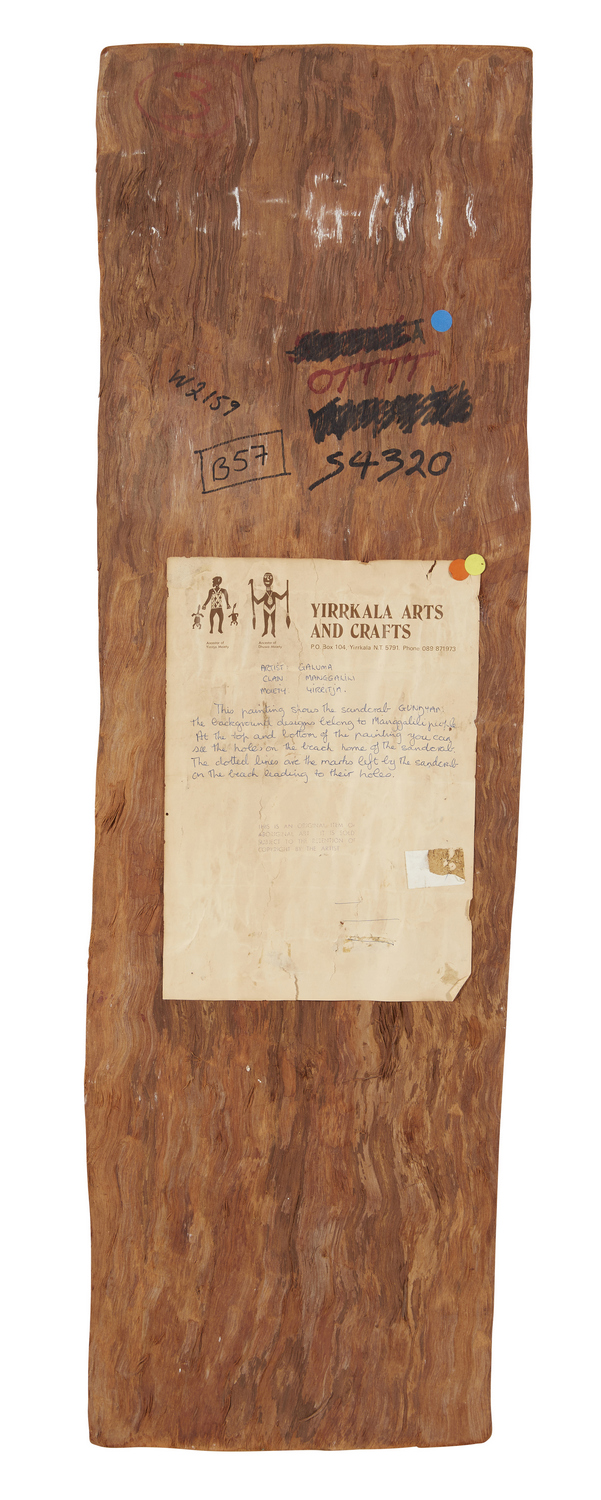 3
W2159
B57
S4320
YIRRKALA ARTS
AND CRAFTS
P.O. Box 104, Yirrkala N.T. 5791. Phone 089 871973
ARTIST: GALUMA
CLAN : MANGGALILI
MOIETY: YIRRITJA.
This painting shows the sandcrab GUNDYAR.
the Background designs belong to Manggalili people.
At the top and bottom of the painting you can
see the holes on the beach home of the sandcrab.
The dotted lines are the marks left by the sandcrab
on the beach leading to their holes.
THIS IS AN ORIGINAL ITEM OF
ABORIGINAL ART. IT IS SOLD
SUBJECT TO THE CONDITION OF
COPYRIGHT BY THE ARTIST.